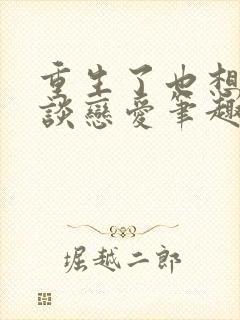 重生了也想
談戀愛筆趣
堀越二郎